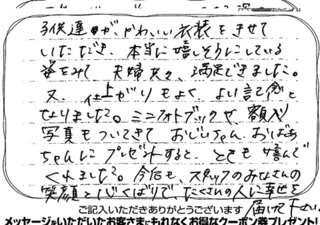 子供達が、かわいい衣装をきせて
いただき、本当に嬉しそうにしている
姿をみて、夫婦共々、満足できました。
又、仕上がりもよく、よい記念と
なりました。ミニフォトブックや、額入り
写真もついてきて おじいちゃん、おばあ
ちゃんにプレゼントすると、とても喜んで
くれました。今后も、スタッフのみなさんの
笑顔と心くばりで、たくさんの人に幸せを
ご記入いただきありがとうございます 届けて下さい。
メッセージをいただいたお客さまにもれなくお得なクーポン券プレゼント!